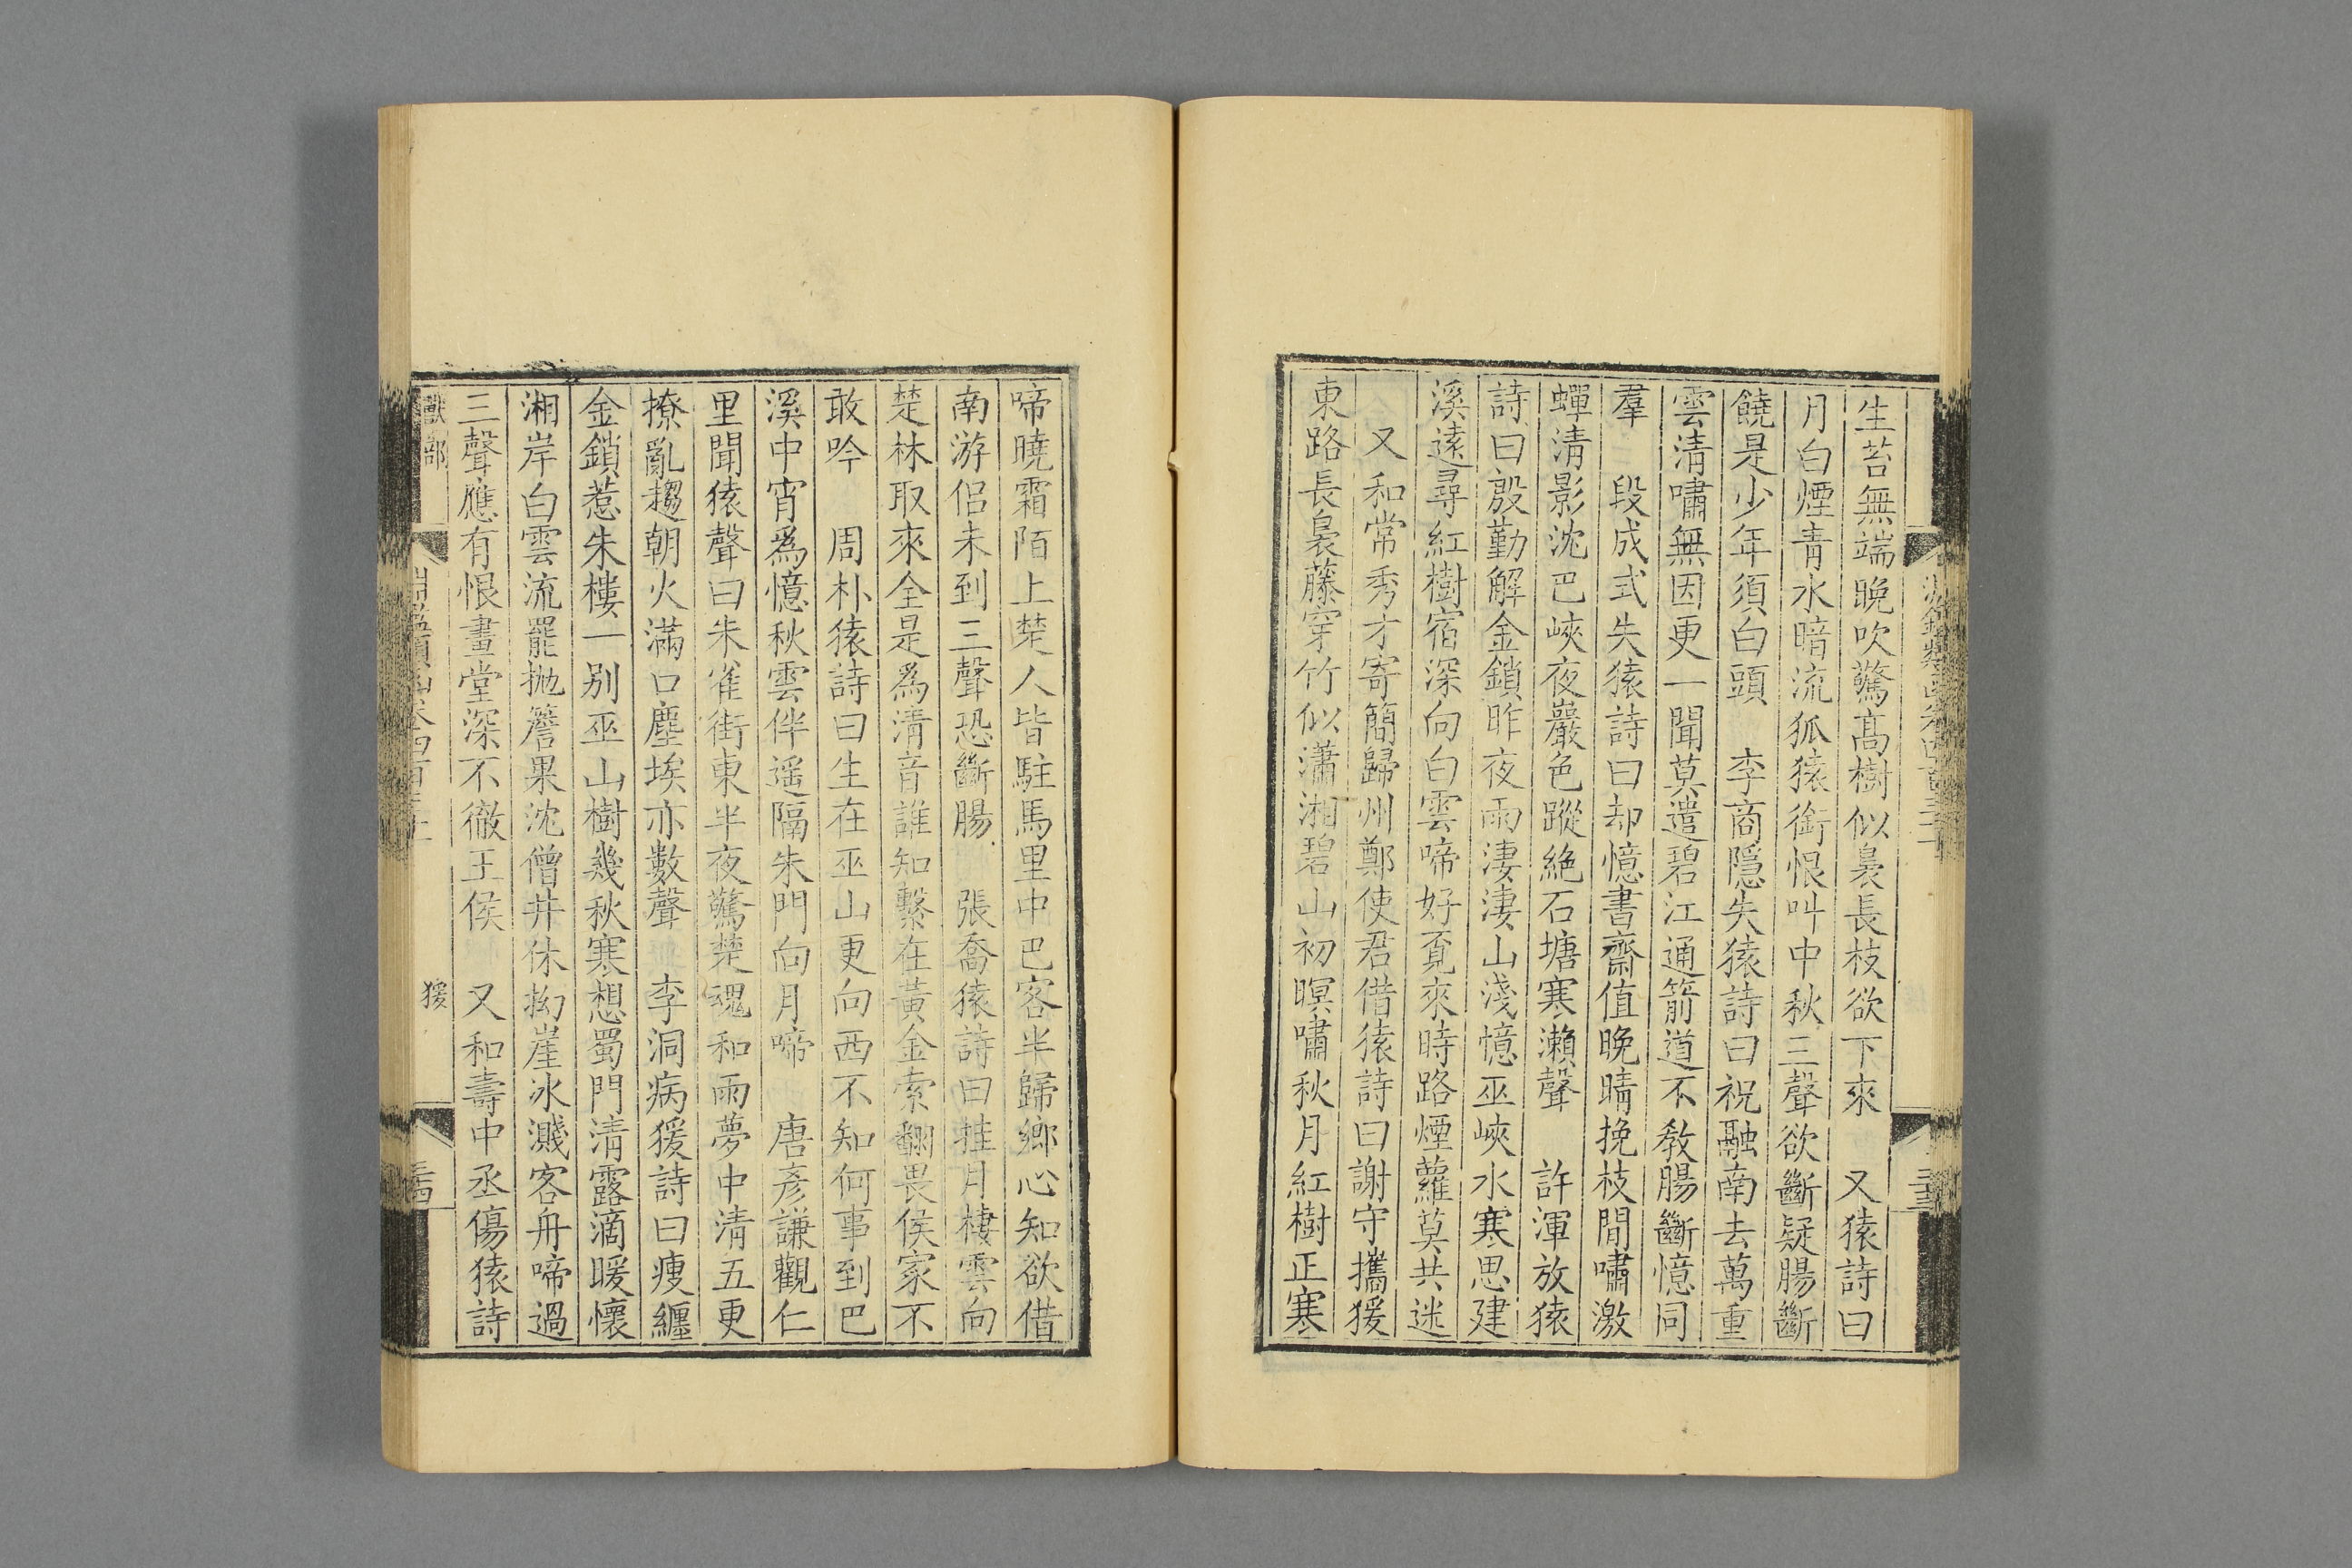 生苔無端晚吹驚髙樹似裊長枝欲下來　又猿詩曰
月白煙青水暗流孤猿銜恨叫中秋三聲欲斷疑腸斷
饒是少年須白頭　李商隱失猿詩曰祝融南去萬重
雲清嘯無因更一聞莫遣碧江通箭道不教腸斷憶同
羣　段成式失猿詩曰却憶書齋值晚晴挽枝閒嘯激
蟬清影沈巴峽夜巖色蹤絶石塘寒瀨聲　許渾放猿
詩曰殷勤解金鎖昨夜雨淒淒山淺憶巫峽水寒思建
溪遠尋紅樹宿深向白雲啼好覔來時路煙蘿莫共迷
又和常秀才寄簡歸州鄭使君借猿詩曰謝守攜猨
東路長裊藤穿竹似瀟湘碧山初暝嘯秋月紅樹正寒
啼曉霜陌上楚人皆駐馬里中巴客半歸鄉心知欲借
南游侶未到三聲恐斷腸　張喬猿詩曰挂月棲雲向
楚林取來全是爲清音誰知繫在黃金索翻畏侯家不
敢吟　周朴猿詩曰生在巫山更向西不知何事到巴
溪中宵爲憶秋雲伴遥隔朱門向月啼　唐彥謙觀仁
里聞猿聲曰朱雀街東半夜驚楚魂和雨夢中清五更
撩亂趨朝火滿口塵埃亦數聲　李洞病猨詩曰瘦纏
金鎖惹朱樓一别巫山樹幾秋寒想蜀門清露滴暖懷
湘岸白雲流罷抛簷果沈僧井休拗崖冰濺客舟啼過
三聲應有恨畫堂深不徹王侯　又和壽中丞傷猿詩
獸部
猨